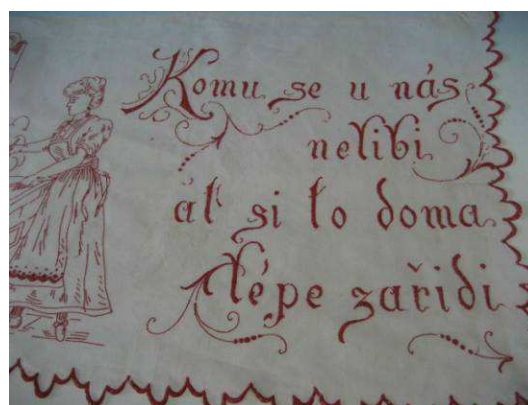 Komu se u nás
nelibi
át si to doma
lépe zařidi